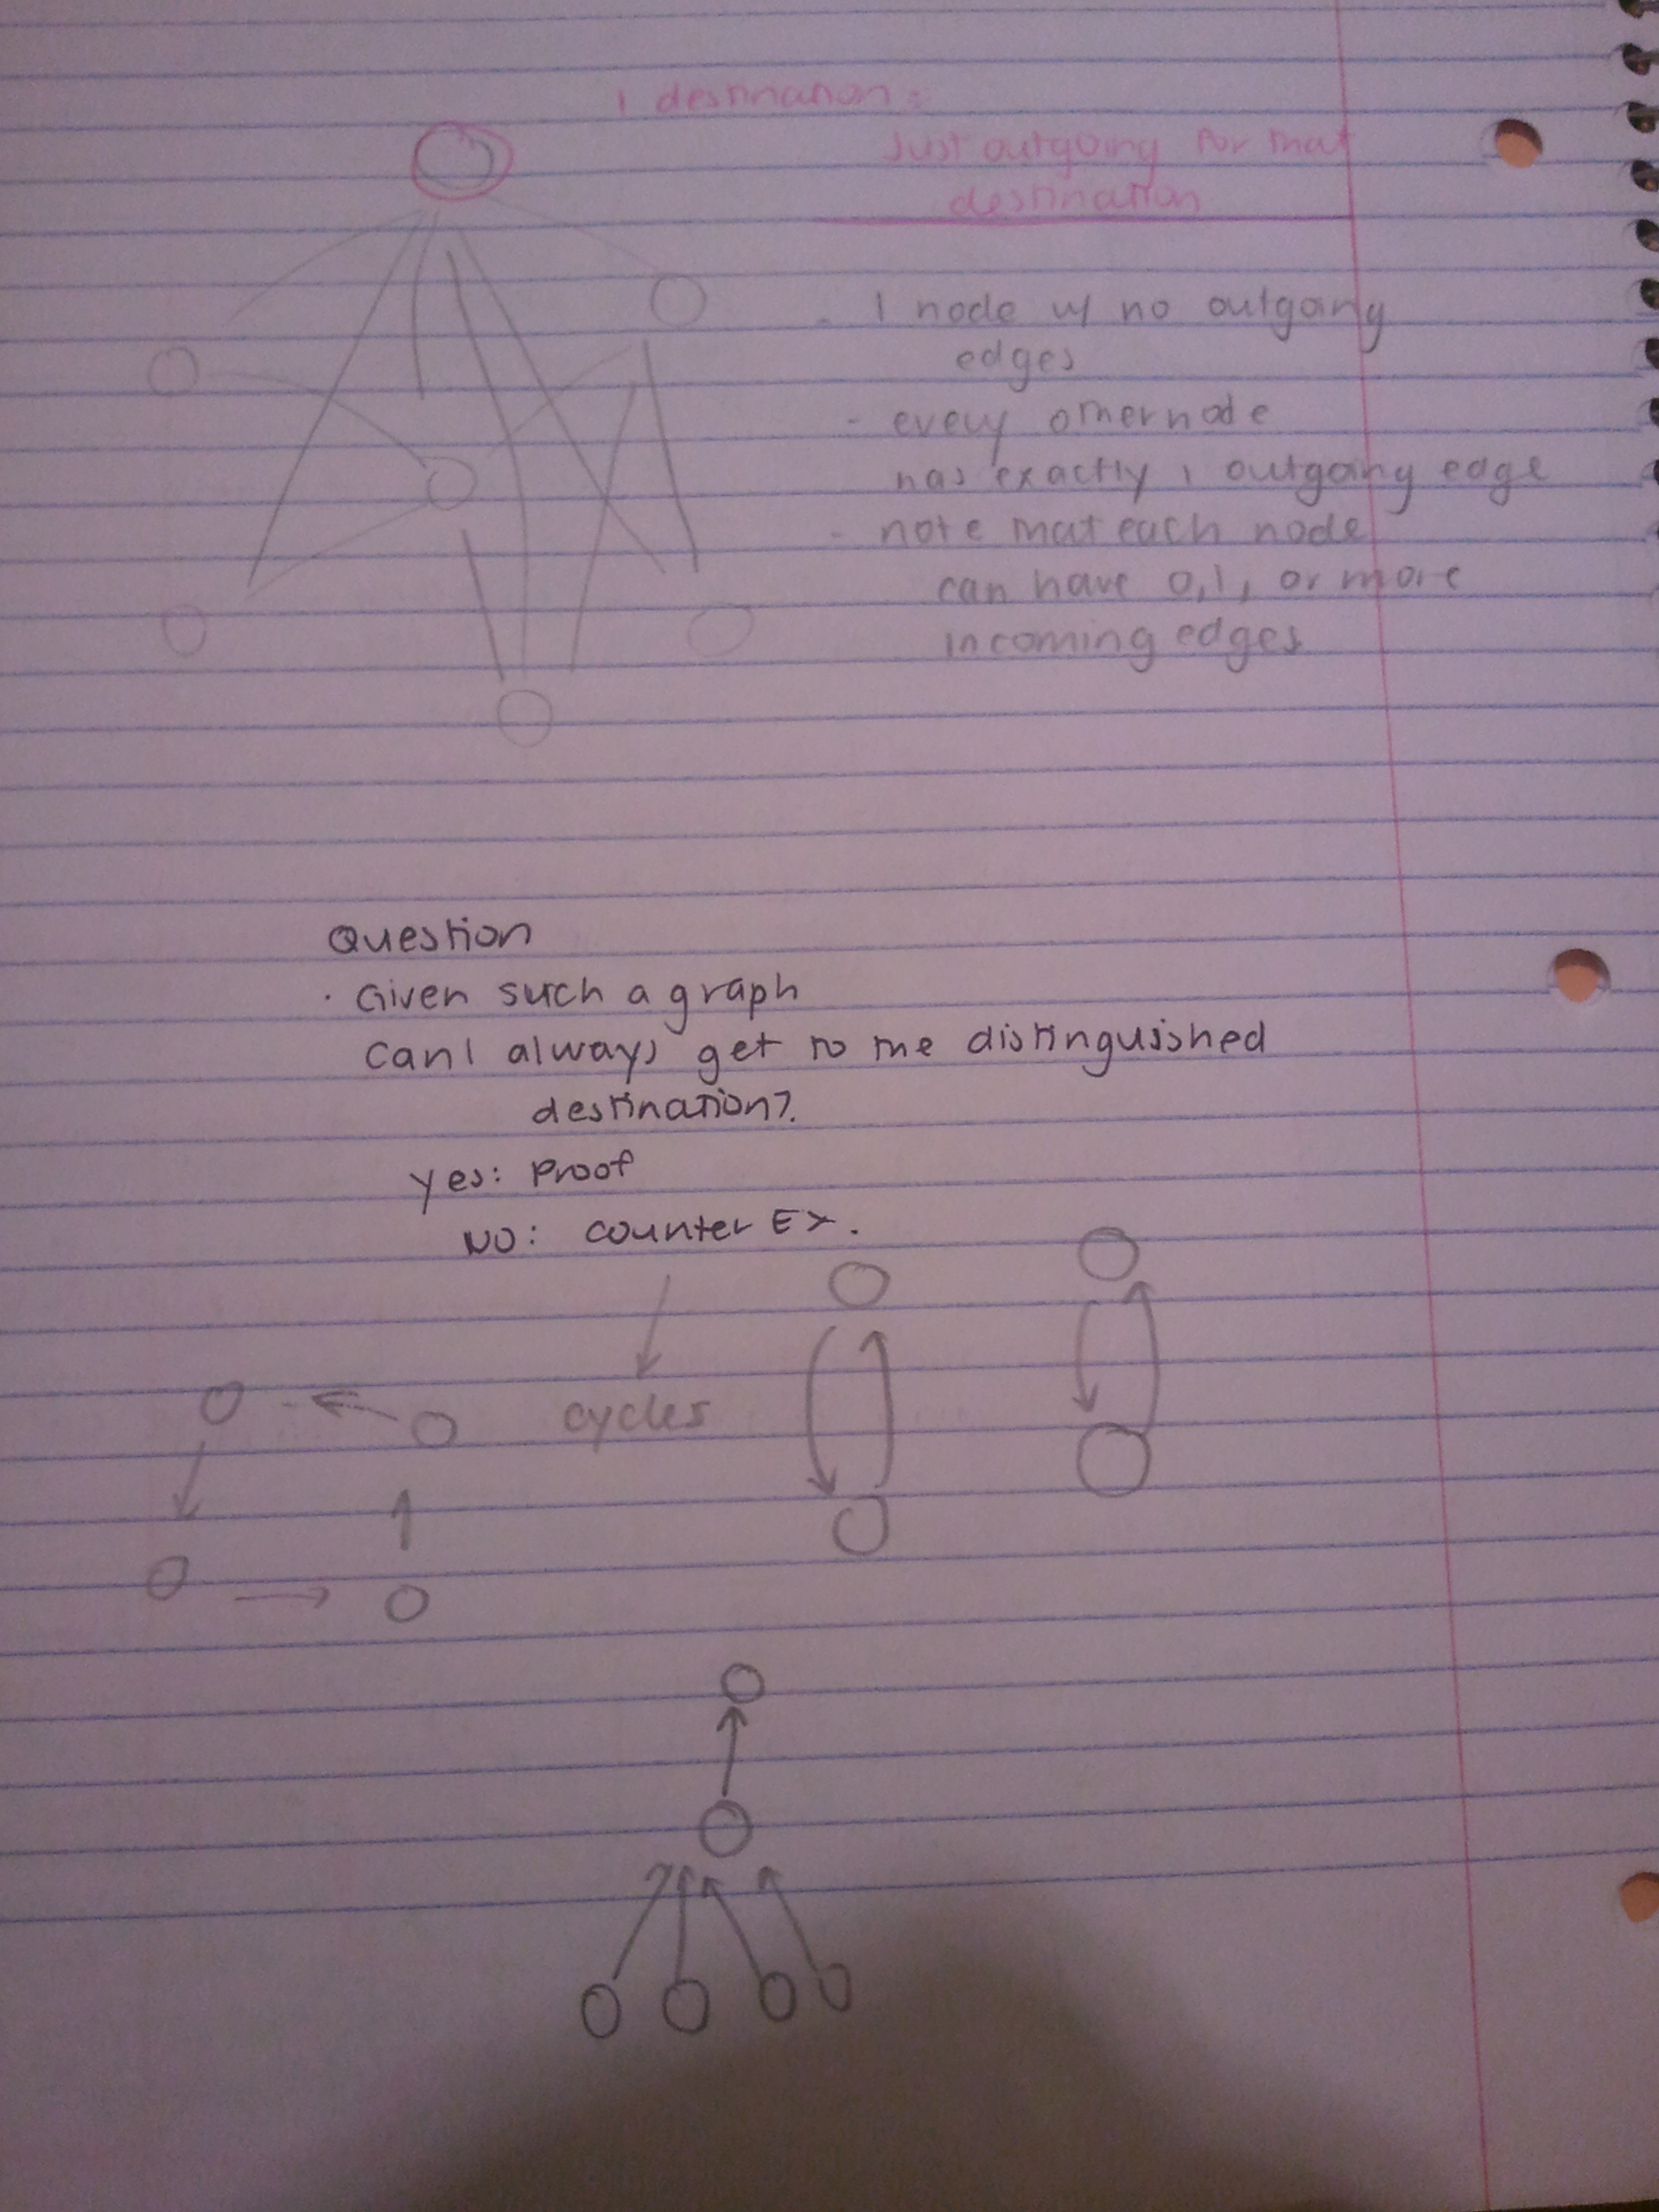 1 destination:
Just outgoing for that
destination
- 1 node w/ no outgoing
edges
- every other node
has exactly 1 outgoing edge
- note that each node
can have 0,1, or more
incoming edges
Question
· Given such a graph
can I always get to the distinguished
destination?
Yes: Proof
NO: counter Ex.
cycles